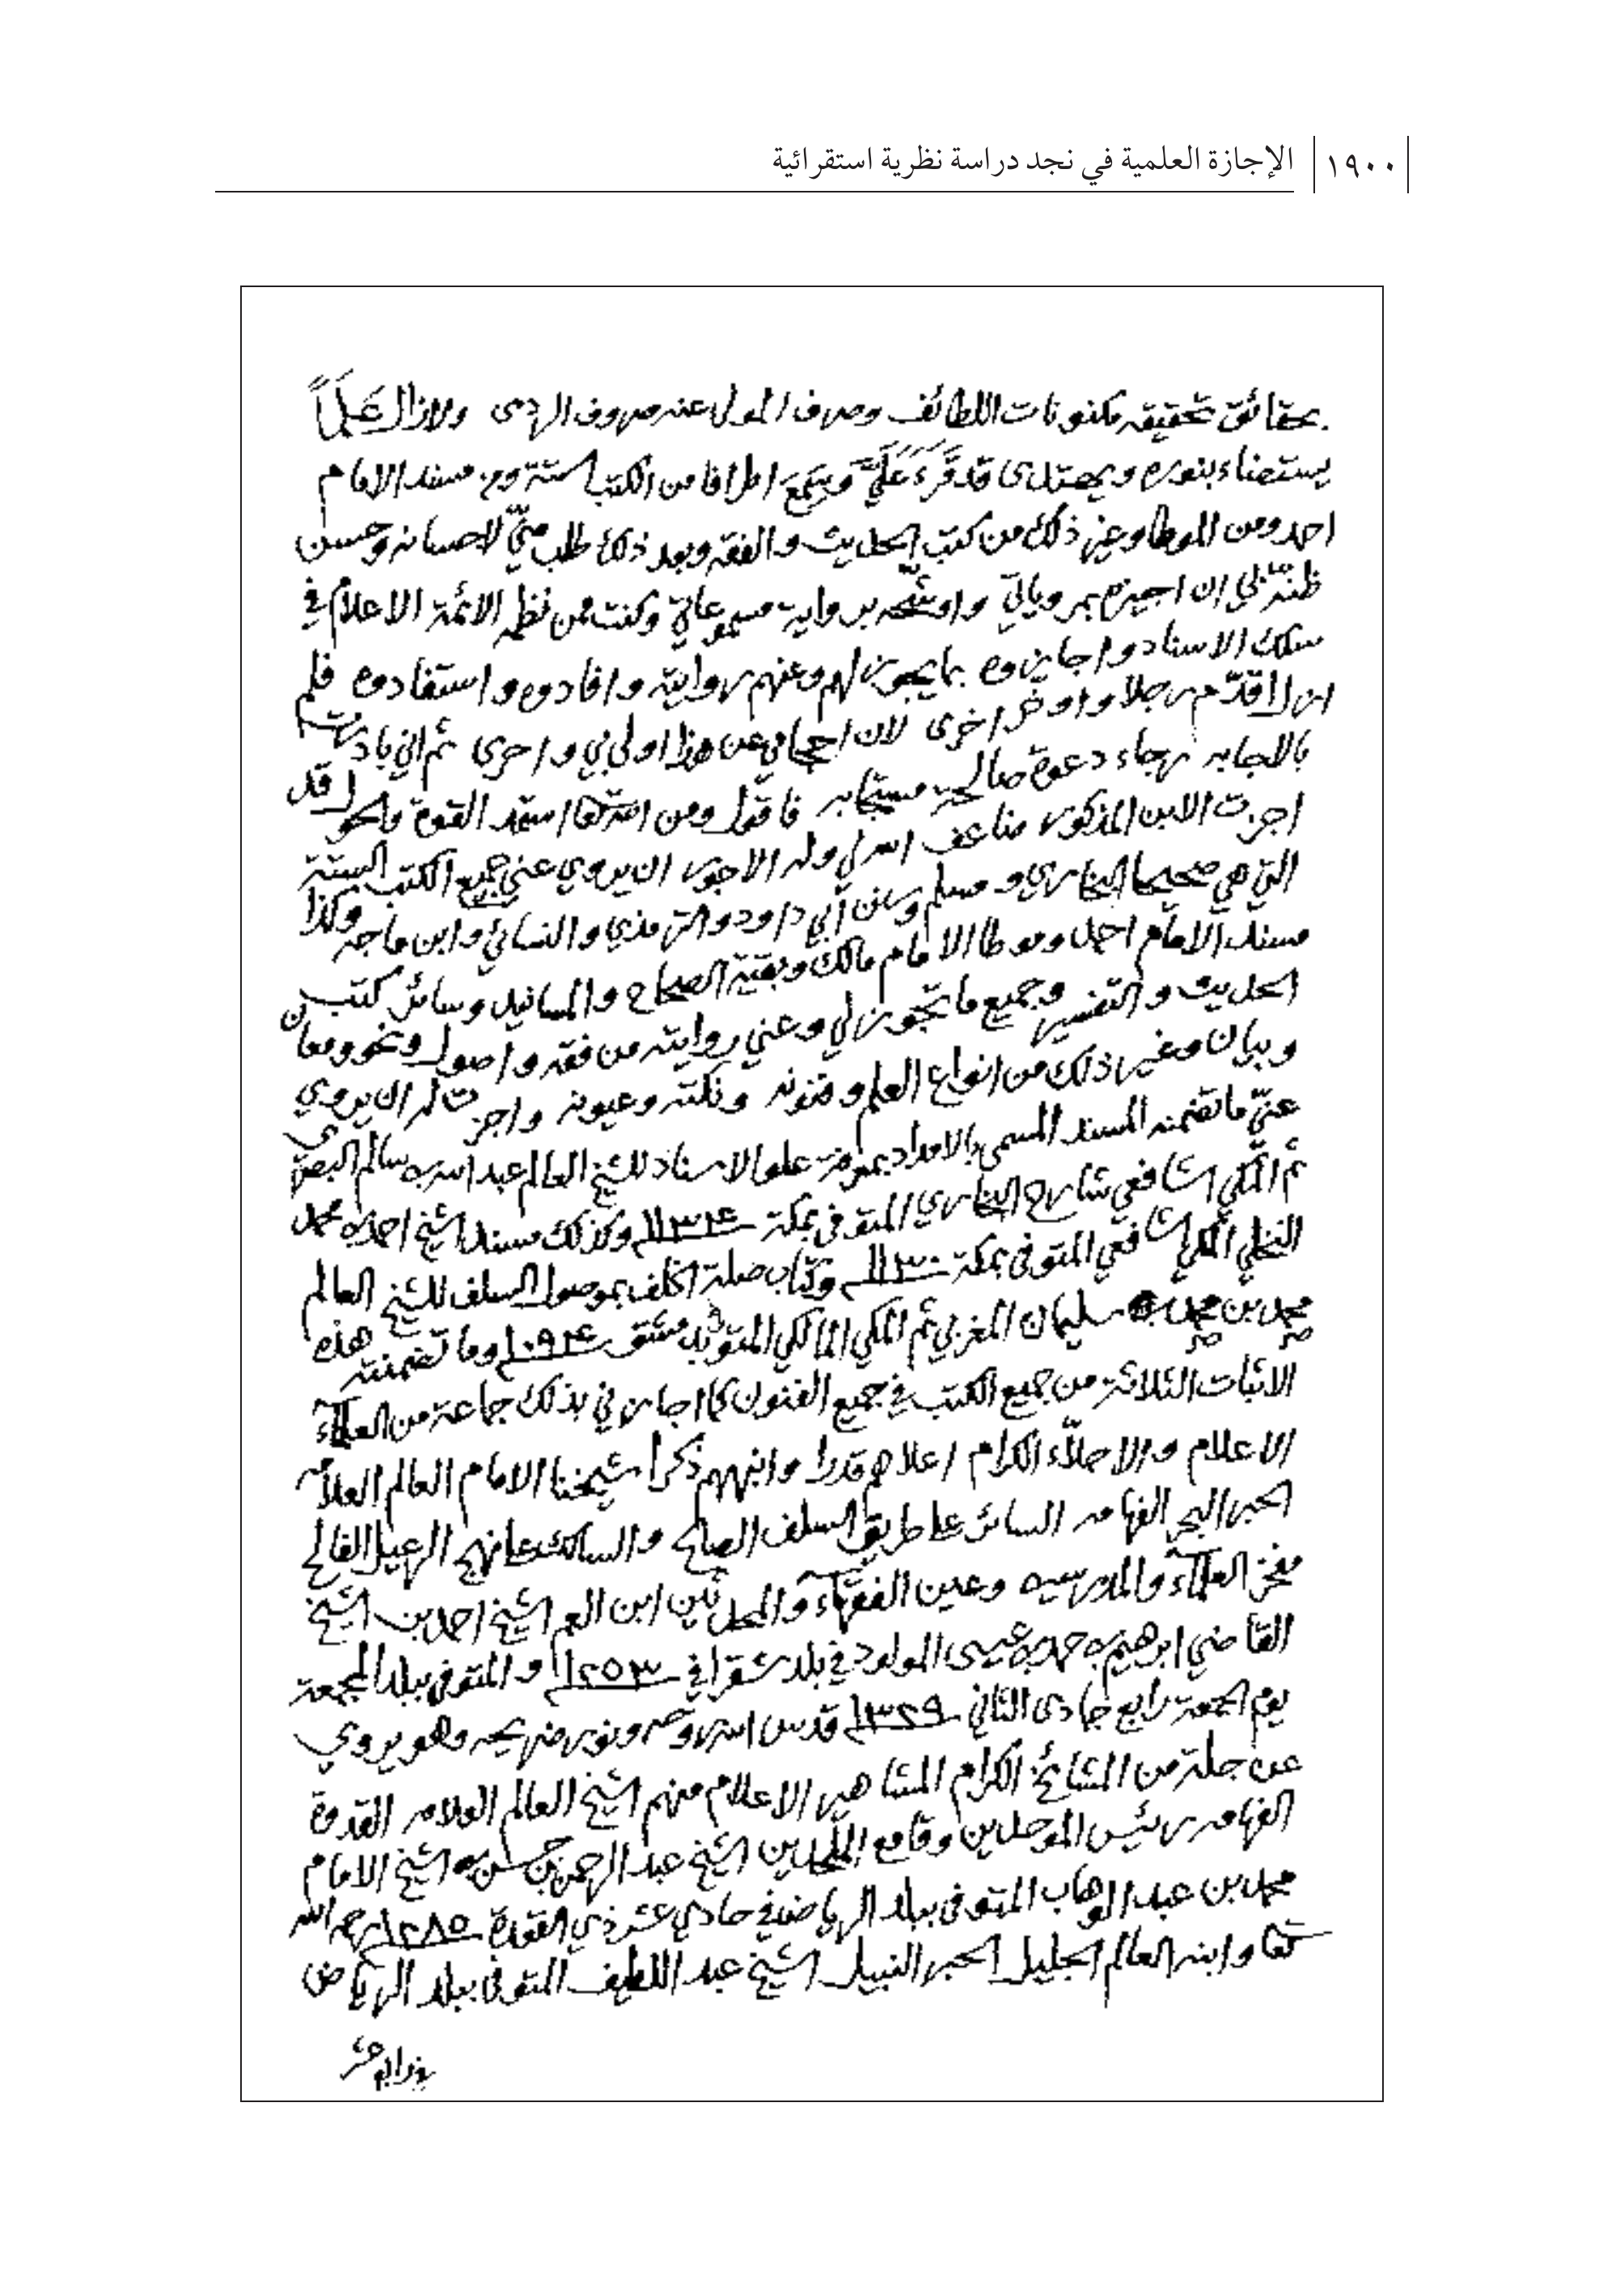 ١٩٠٠ الإجازة العلمية في نجد دراسة نظرية استقرائية
بحقائق تحقيقه مكنونات اللطائف وصرف المولى عنه صروف الردى ولازال علماً
يستضاء بنوره ويهتدى قد قَرَءَ عَلَيَّ وَسَمِعَ اطرافا من الكتب الستة ومن مسند الامام
احمد ومن الموطا وغير ذلك من كتب الحديث والفقه وبعد ذلك طلب منّي لاحسانه وحسن
ظنّه بي ان اجيزه بمروياتي واوشّحه برواية مسموعاتي وكنت ممن نظمه الائمة الاعلام في
سلك الاسناد واجازوه بما يجوز لهم وعنهم روايته وافادوه واستفادوه فلم
ازل اقدّم رجلا واوخر اخرى لان احجامي عن هذا اولى بي واحرى ثم اني بادرته
بالاجابه رجاء دعوة صالحة مستجابه فاقول ومن الله استمد القوة والحول قد
اجزت الابن المذكور ضاعف الله لي وله الاجور ان يروي عني جميع الكتب الستة
التي هي صحيحا البخاري ومسلم وسنن أبي داود والترمذي والنسائي وابن ماجه وكذا
مسند الامام احمد وموطا الامام مالك وبقية الصحاح والمسانيد وسائر كتب
الحديث والتفسير وجميع ما تجوز لي وعني روايته من فقه واصول ونحو ومعان
وبيان وغير ذلك من انواع العلم وفنونه ونكته وعيونه واجزت له ان يروي
عنّي ما تضمنه المسند المسمى بالامداد بمعرفة علو الاسناد للشيخ العالم عبد الله بن سالم البصري
ثم المكي الشافعي شارح البخاري المتوفى بمكة ١١٣٤ وكذلك مسند الشيخ احمد بن محمد
النخلي المكي الشافعي المتوفى بمكة ١١٣٠ وكتاب صلة الخلف بموصول السلف للشيخ العالم
محمد بن محمد بن سليمان المغربي ثم المكي المالكي المتوفى بدمشق ١٠٩٤ وما تضمنته هذه
الاثبات الثلاثة من جميع الكتب في جميع الفنون كما اجازني بذلك جماعة من العلماء
الاعلام والاجلاّء الكرام اعلاهم قدرا وانبههم ذكرا شيخنا الامام العالم العلامه
الحبر البحر الفهامه السائر على طريق السلف الصالح والسالك على نهج الرعيل الفالح
مفخر العلماء والمدرسين وعين الفقهاء والمحدثين ابن العم الشيخ احمد بن الشيخ
القاضي ابرهيم بن حمد بن عيسى المولود في بلد شقرا في ١٢٥٣ والمتوفى ببلد المجمعة
يوم الجمعة رابع جمادى الثاني ١٣٢٩ قدس الله روحه ونور ضريحه وهو يروي
عن جلة من المشائخ الكرام المشاهير الاعلام منهم الشيخ العالم العلامه القدوة
الفهامه رئيس الموحدين وقامع الملحدين الشيخ عبد الرحمن بن حسن بن الشيخ الامام
محمد بن عبد الوهاب المتوفى ببلد الرياض في حادي عشر ذي القعدة ١٢٨٥ رحمه الله
تعا وابنه العالم الجليل الحبر النبيل الشيخ عبد اللطيف المتوفى ببلد الرياض
في رابع عشر